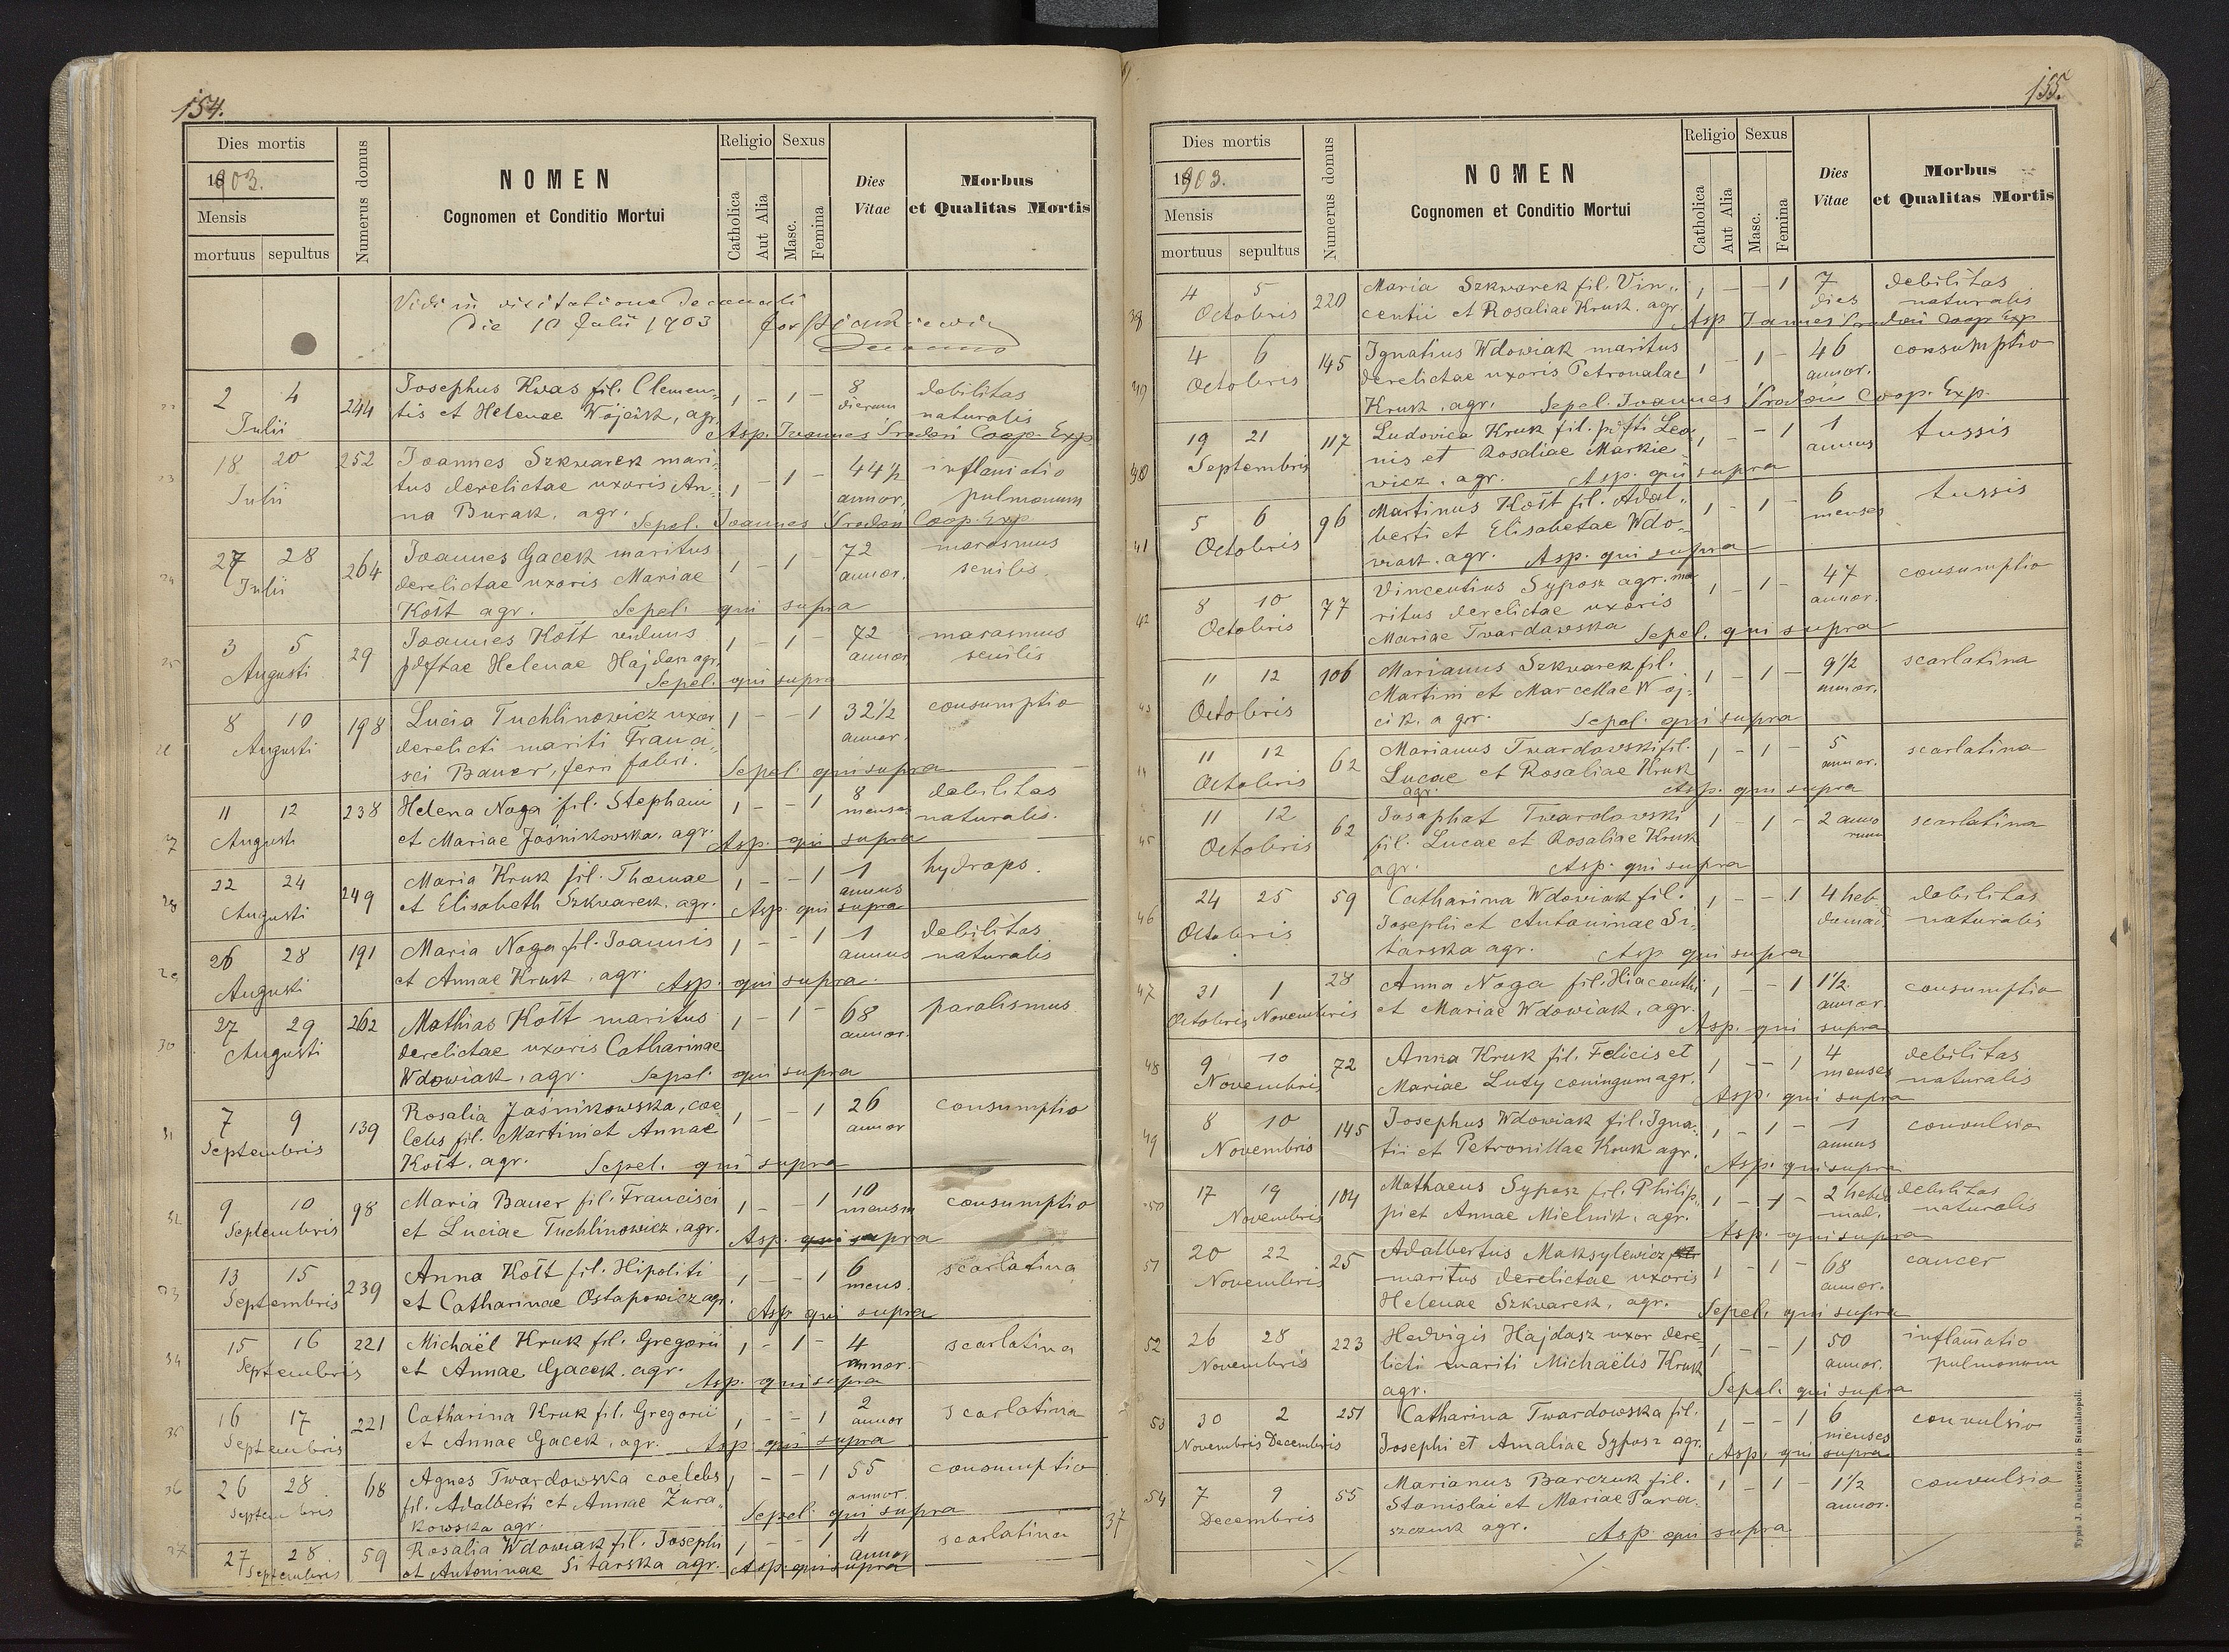 154.
Dies mortis
1903.
Mensis
mortuus sepultus
Numerus domus
NOMEN
Cognomen et Conditio Mortui
Religio
Catholica
Aut Alia
Sexus
Masc.
Femina
Dies
Vitae
Morbus
et Qualitas Mortis
Vidi in visitatione decanali
die 10 Julii 1903
2 4 244 Josephus Kwas fil. Clemen- 1 - 1 - 8 debilitas
Julii tis et Helenae Wójcik, agr. dierum naturalis
Asp. Joannes Coop. Exp.
18 20 252 Joannes Szkwarek mari- 1 - 1 - 44½ inflamatio
Julii tus derelictae uxoris An- annor. pulmonum
na Burak, agr. Sepel. Joannes Coop. Exp.
27 28 264 Joannes Gacek maritus 1 - 1 - 72 marasmus
Julii derelictae uxoris Mariae annor. senilis.
Kott agr. Sepel. qui supra
3 5 29 Joannes Kott viduus 1 - 1 - 72 marasmus
Augusti pdftae Helenae Hajdasz agr. annor senilis
Sepel. qui supra
8 10 198 Lucia Tuchlinowicz uxor 1 - - 1 32½ consumptio
Augusti derelicti mariti Franci- annor.
sci Bauer, ferri fabri. Sepel. qui supra
11 12 238 Helena Noga fil. Stephani 1 - - 1 8 debilitas
Augusti et Mariae Jaśnikowska, agr. menses naturalis.
Asp. qui supra
22 24 249 Maria Kruk fil. Thomae 1 - - 1 1 hydrops.
Augusti et Elisabeth Szkwarek, agr. annus
Asp. qui supra
26 28 191 Maria Noga fil. Joannis 1 - - 1 1 debilitas
Augusti et Annae Kruk, agr. annus naturalis
Asp. qui supra.
27 29 262 Mathias Kott maritus 1 - 1 - 68 paralismus
Augusti derelictae uxoris Catharinae annor.
30 Wdowiak, agr. Sepel. qui supra
7 9 139 Rosalia Jaśnikowska, coe- 1 - - 1 26 consumptio
Septembris lebs fil. Martini et Annae annor
31 Kott. agr. Sepel. qui supra
9 10 98 Maria Bauer fil. Francisci 1 - - 1 10 consumptio
Septembris et Luciae Tuchlinowicz, agr. mensium
Asp. qui supra
13 15 239 Anna Kott fil. Hipoliti 1 - - 1 6 scarlatina
Septembris et Catharinae Ostapowicz agr. mens.
Asp. qui supra
34 15 16 221 Michaël Kruk fil. Gregorii 1 - 1 - 4 scarlatina
Septembris et Annae Gacek. agr. annor.
Asp. qui supra
16 17 221 Catharina Kruk fil. Gregorii 1 - - 1 2 scarlatina
Septembris et Annae Gacek, agr. annor
Asp. qui supra
26 28 68 Agnes Twardowska coelebs 1 - - 1 55 consumptio
Septembris fil. Adalberti et Annae Żura- annor.
kowska agr. Sepel. qui supra
27 28 59 Rosalia Wdowiak fil. Josephi 1 - - 1 4 scarlatina
Septembris et Antoninae Sitarska agr. annor
Asp. qui supra
37
155.
Dies mortis
1903.
Mensis
mortuus sepultus
Numerus domus
NOMEN
Cognomen et Conditio Mortui
Religio
Catholica
Aut Alia
Sexus
Masc.
Femina
Dies
Vitae
Morbus
et Qualitas Mortis
4 5 220 Maria Szkwarek fil. Vin- 1 - - 1 7 debilitas
38 Octobris centii et Rosaliae Kruk. agr. dies naturalis
Asp Joannes Coop Exp
4 6 145 Ignatius Wdowiak maritus 1 - 1 - 46 consumptio
Octobris derelictae uxoris Petronalae annor.
Kruk, agr. Sepel. Joannes Coop. Exp.
19 21 117 Ludovica Kruk fil. pdfti Leo- 1 - - 1 1 tussis
Septembris nis et Rosaliae Markie- annus
wicz, agr. Asp. qui supra
5 6 96 Martinus Kott fil. Adal- 1 - 1 - 6 tussis
41 Octobris berti et Elisabetae Wdo- menses
wiak. agr. Asp. qui supra
8 10 77 Vincentius Syposz agr. ma- 1 - 1 - 47 consumptio
42 Octobris ritus derelictae uxoris annor.
Mariae Twardowska Sepel. qui supra
11 12 106 Marianus Szkwarek fil. 1 - 1 - 9½ scarlatina
43 Octobris Martini et Marcellae Woj- annor.
cik. agr. Sepel. qui supra
11 12 62 Marianus Twardowski fil. 1 - 1 - 5 scarlatina
Octobris Lucae et Rosaliae Kruk annor.
agr. Asp. qui supra
11 12 62 Josaphat Twardowski 1 - 1 - 2 anno- scarlatina
45 Octobris fil. Lucae et Rosaliae Kruk rum
agr. Asp. qui supra
24 25 59 Catharina Wdowiak fil. 1 - - 1 4 heb- debilitas
46 Octobris Josephi et Antoninae Si- domad. naturalis
tarska agr. Asp qui supra
47 31 1 28 Anna Noga fil. Hiacenthi 1 - - 1 1½ consumptio
Octobris Novembris et Mariae Wdowiak, agr. annor
Asp. qui supra
48 9 10 72 Anna Kruk fil. Felicis et 1 - - 1 4 debilitas
Novembris Mariae Luty coningum agr. menses naturalis
Asp. qui supra
49 8 10 145 Josephus Wdowiak fil. Igna- 1 - 1 - 1 convulsio
Novembris tii et Petronillae Kruk agr. annus
Asp. qui supra
50 17 19 104 Mathaeus Syposz fil. Philip- 1 - 1 - 2 hebd debilitas
Novembris pi et Annae Mielnik, agr. mad. naturalis
Asp. qui supra
51 20 22 25 Adalbertus Maksylewicz 1 - 1 - 68 cancer
Novembris maritus derelictae uxoris annor.
Helenae Szkwarek, agr. Sepel. qui supra
52 26 28 223 Hedvigis Hajdasz uxor dere- 1 - - 1 50 inflamatio
Novembris licti mariti Michaëlis Kruk annor. pulmonum
agr. Sepel. qui supra
53 30 2 251 Catharina Twardowska fil. 1 - - 1 6 convulsio
Novembris Decembris Josephi et Amaliae Syposz agr. menses
Asp. qui supra
54 7 9 55 Marianus Barczuk fil. 1 - 1 - 1½ convulsio
Decembris Stanislai et Mariae Tara- annor.
szczuk agr. Asp. qui supra
Typis J. Dankiewicz in Stanislaopoli.